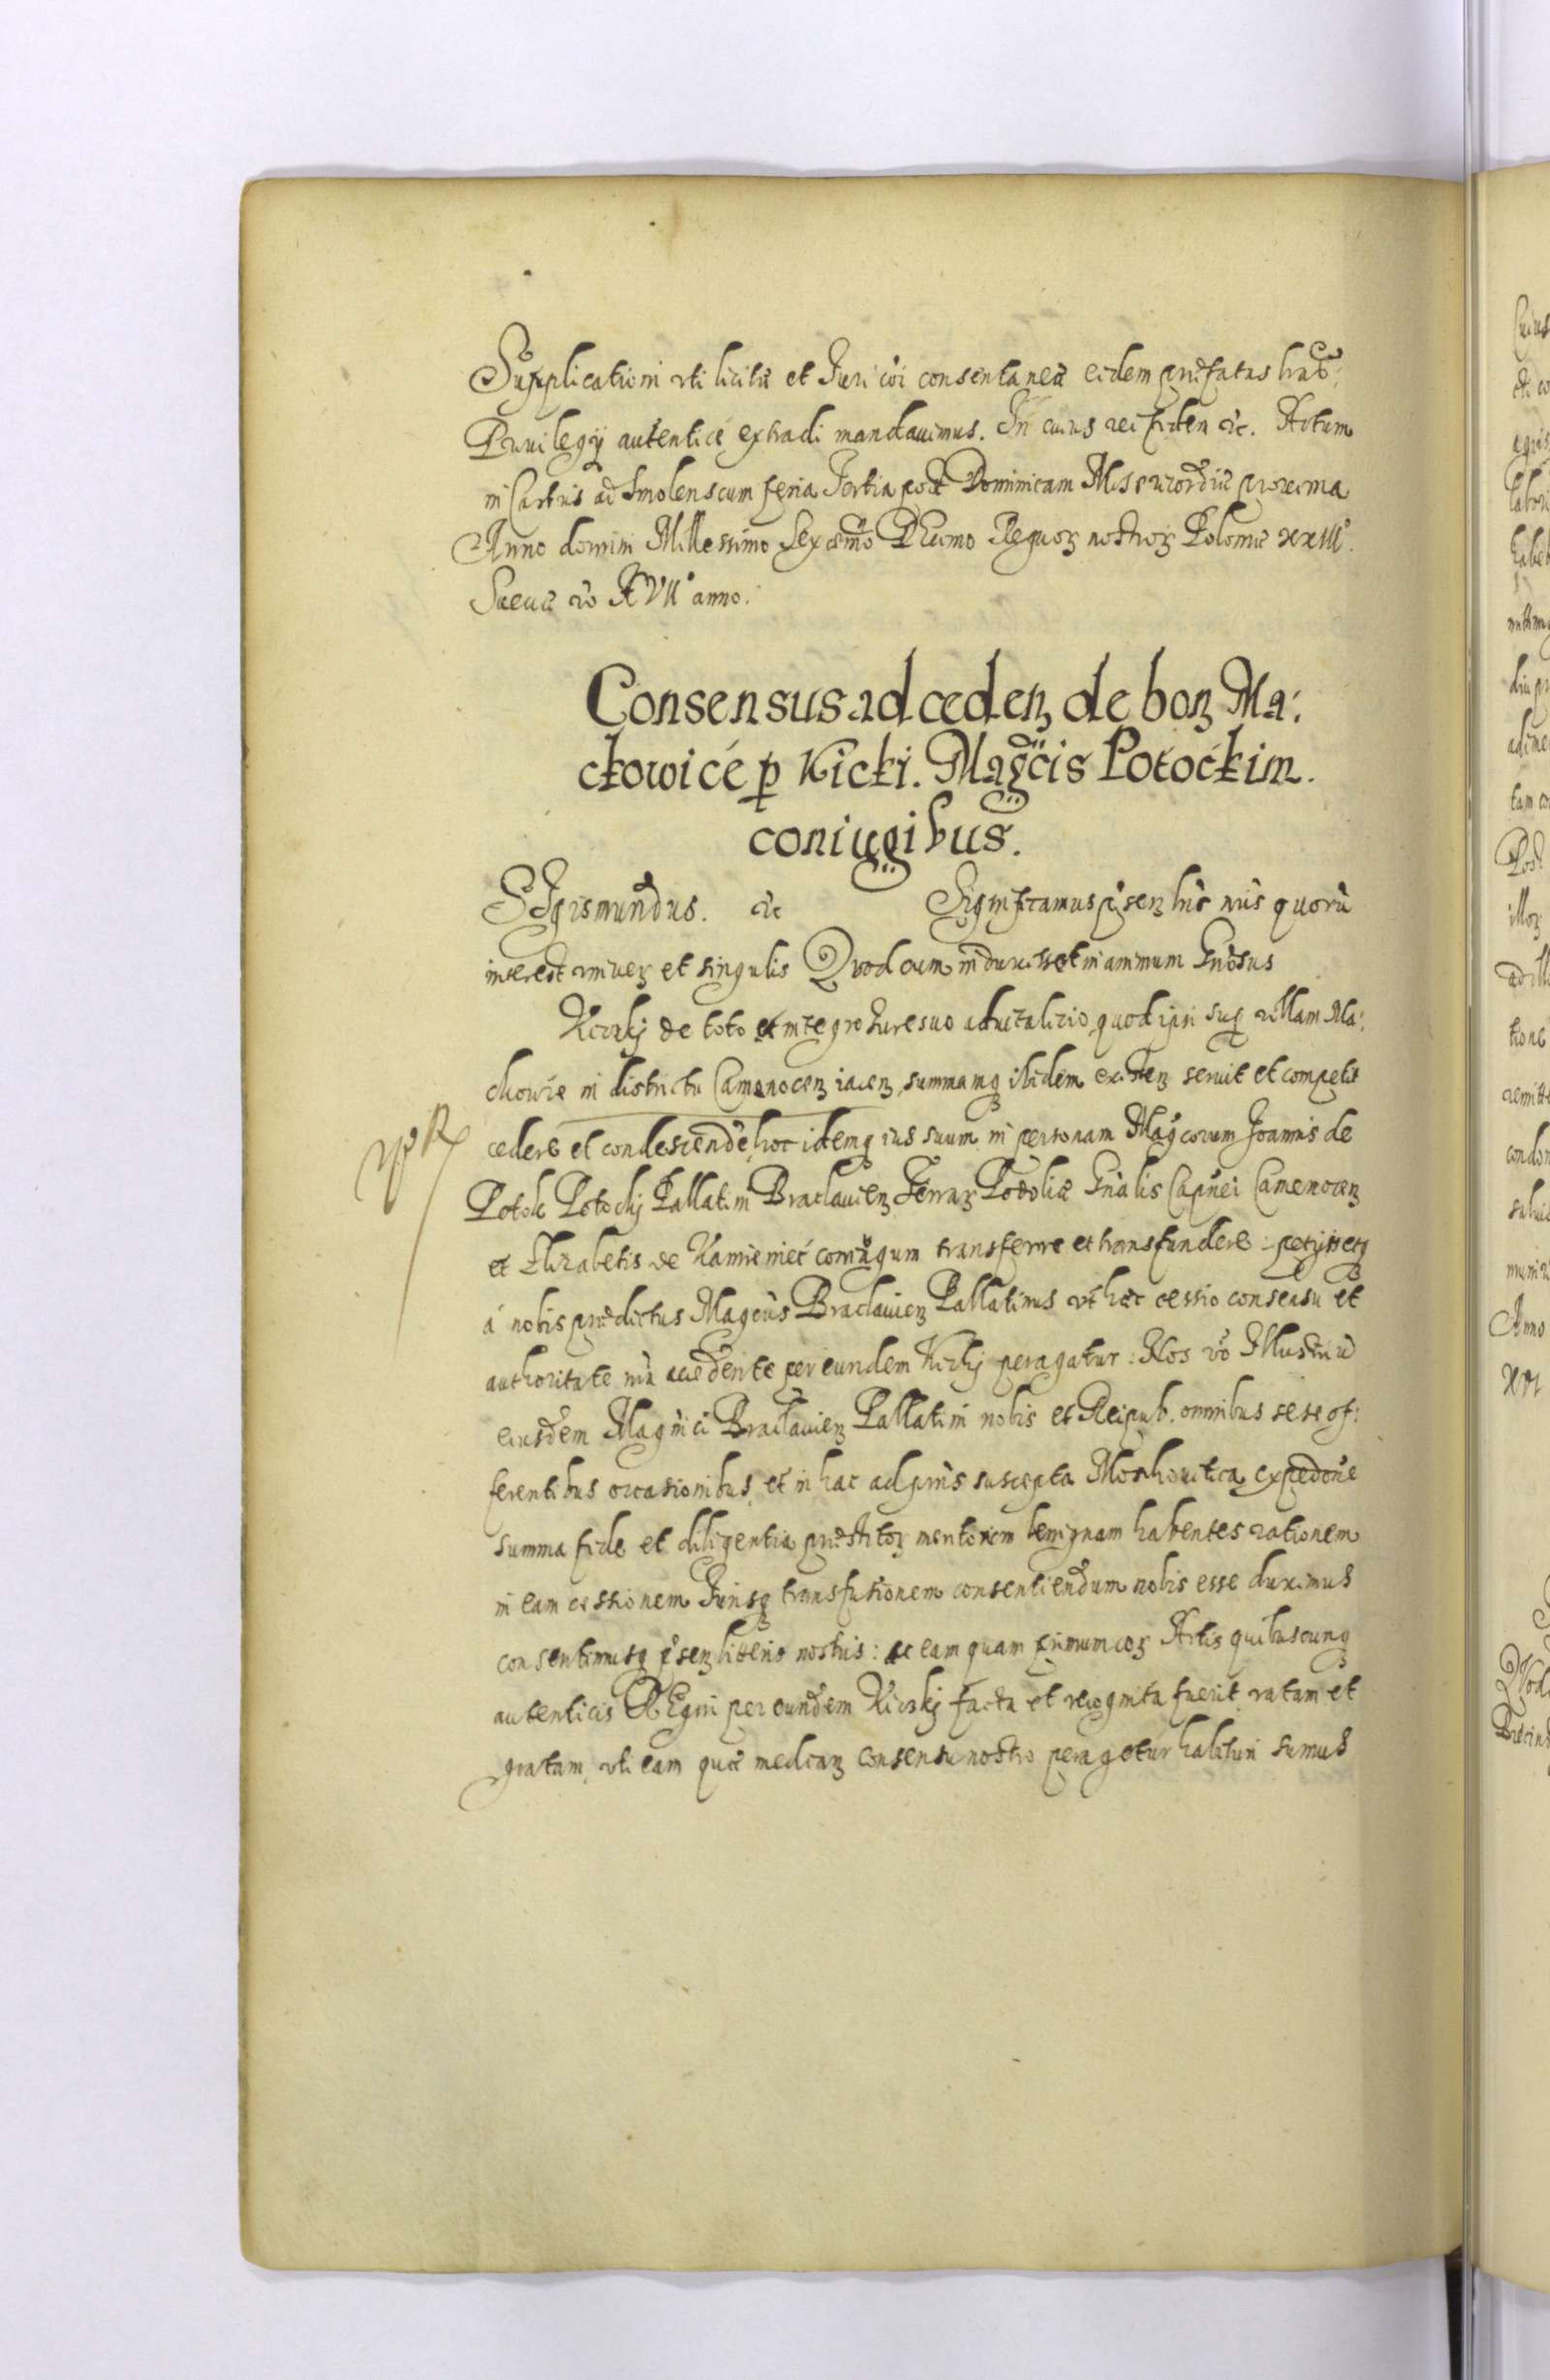 Supplicationi uti licitæ et Juri cõi consentaneæ eidem præfatas lras
Privilegÿ autenticè extradi mandavimus. In cuius rei fidem etc. Actum
in Castris ad Smolenscum feria Tertia post Dominicam Misericordiæ proxima
Anno domini Millessimo Sexcentmo Decimo Regnorꝫ nostrorꝫ Poloniæ XXIII°.
Sueciæ vo XVII° anno.
Consensus ad cedenꝫ de bonꝫ Ma:
ckowicé ꝑ Kicki. Magcis Potockim.
coniugibus.
SIgismundus. etc Significamus pñsenꝫ hris nris quorũ
interest univerꝫ et singulis Quod cum induxisset in animum Gñosus
Kicskj de toto et integro Jure suo advitalitio, quod ipsi suꝑ villam Ma:
ckowicé in districtu Camenecenꝫ iacenꝫ, summamqꝫ ibidem existenꝫ servit et competit
cedere et condescendẽ, hoc idemqꝫ ius suum in personam Magcorum Joannis de
Potok Potockj Pallatini Braclavienꝫ Terrarꝫ Podoliæ Gñalis Capnei Camenecenꝫ
et Elizabetis de Kamieniec coniugum transferre et transfundere: petÿssetqꝫ
á nobis prædictus Magcus Braclavienꝫ Pallatinus ut hæc cessio consensu et
authoritate nrã accedente per eundem Kickj peragatur: Nos vo Illustriũ
eiusdem Magnici Braclavienꝫ Pallatini nobis et Reipub. omnibus sese of:
ferentibus occasionibus, et in hac adprns suscepta Moschovitica expedõne
summa fide et diligentia præstitorꝫ meritorum benignam habentes rationem
in eam cessionem Jurisqꝫ transfusionem consentiendum nobis esse duximus
consentimusqꝫ pñsenꝫ litteris nostris: ac eam quam primum corꝫ Actis quibuscunqꝫ
autenticis REgni per eundem Kicskj facta et recognita fuerit, ratam et
gratam, uti eam quæ medianꝫ consensu nostro peragetur habituri sumus